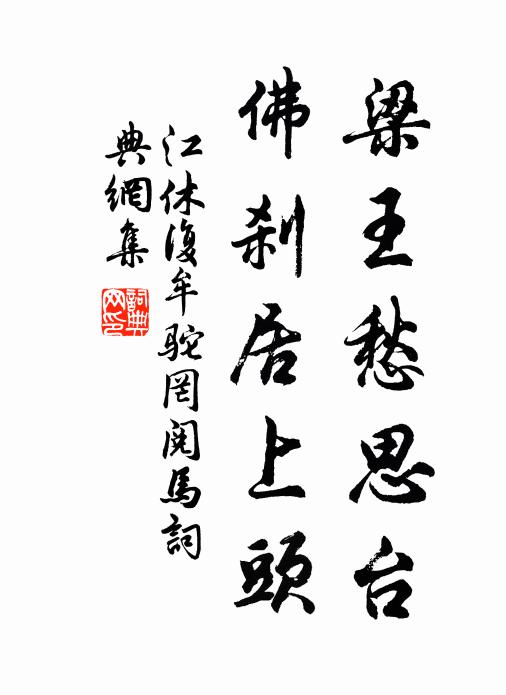 梁王愁思台
佛刹居上頭
江休復牟駝罔閱馬詞
典網集
詞典網印